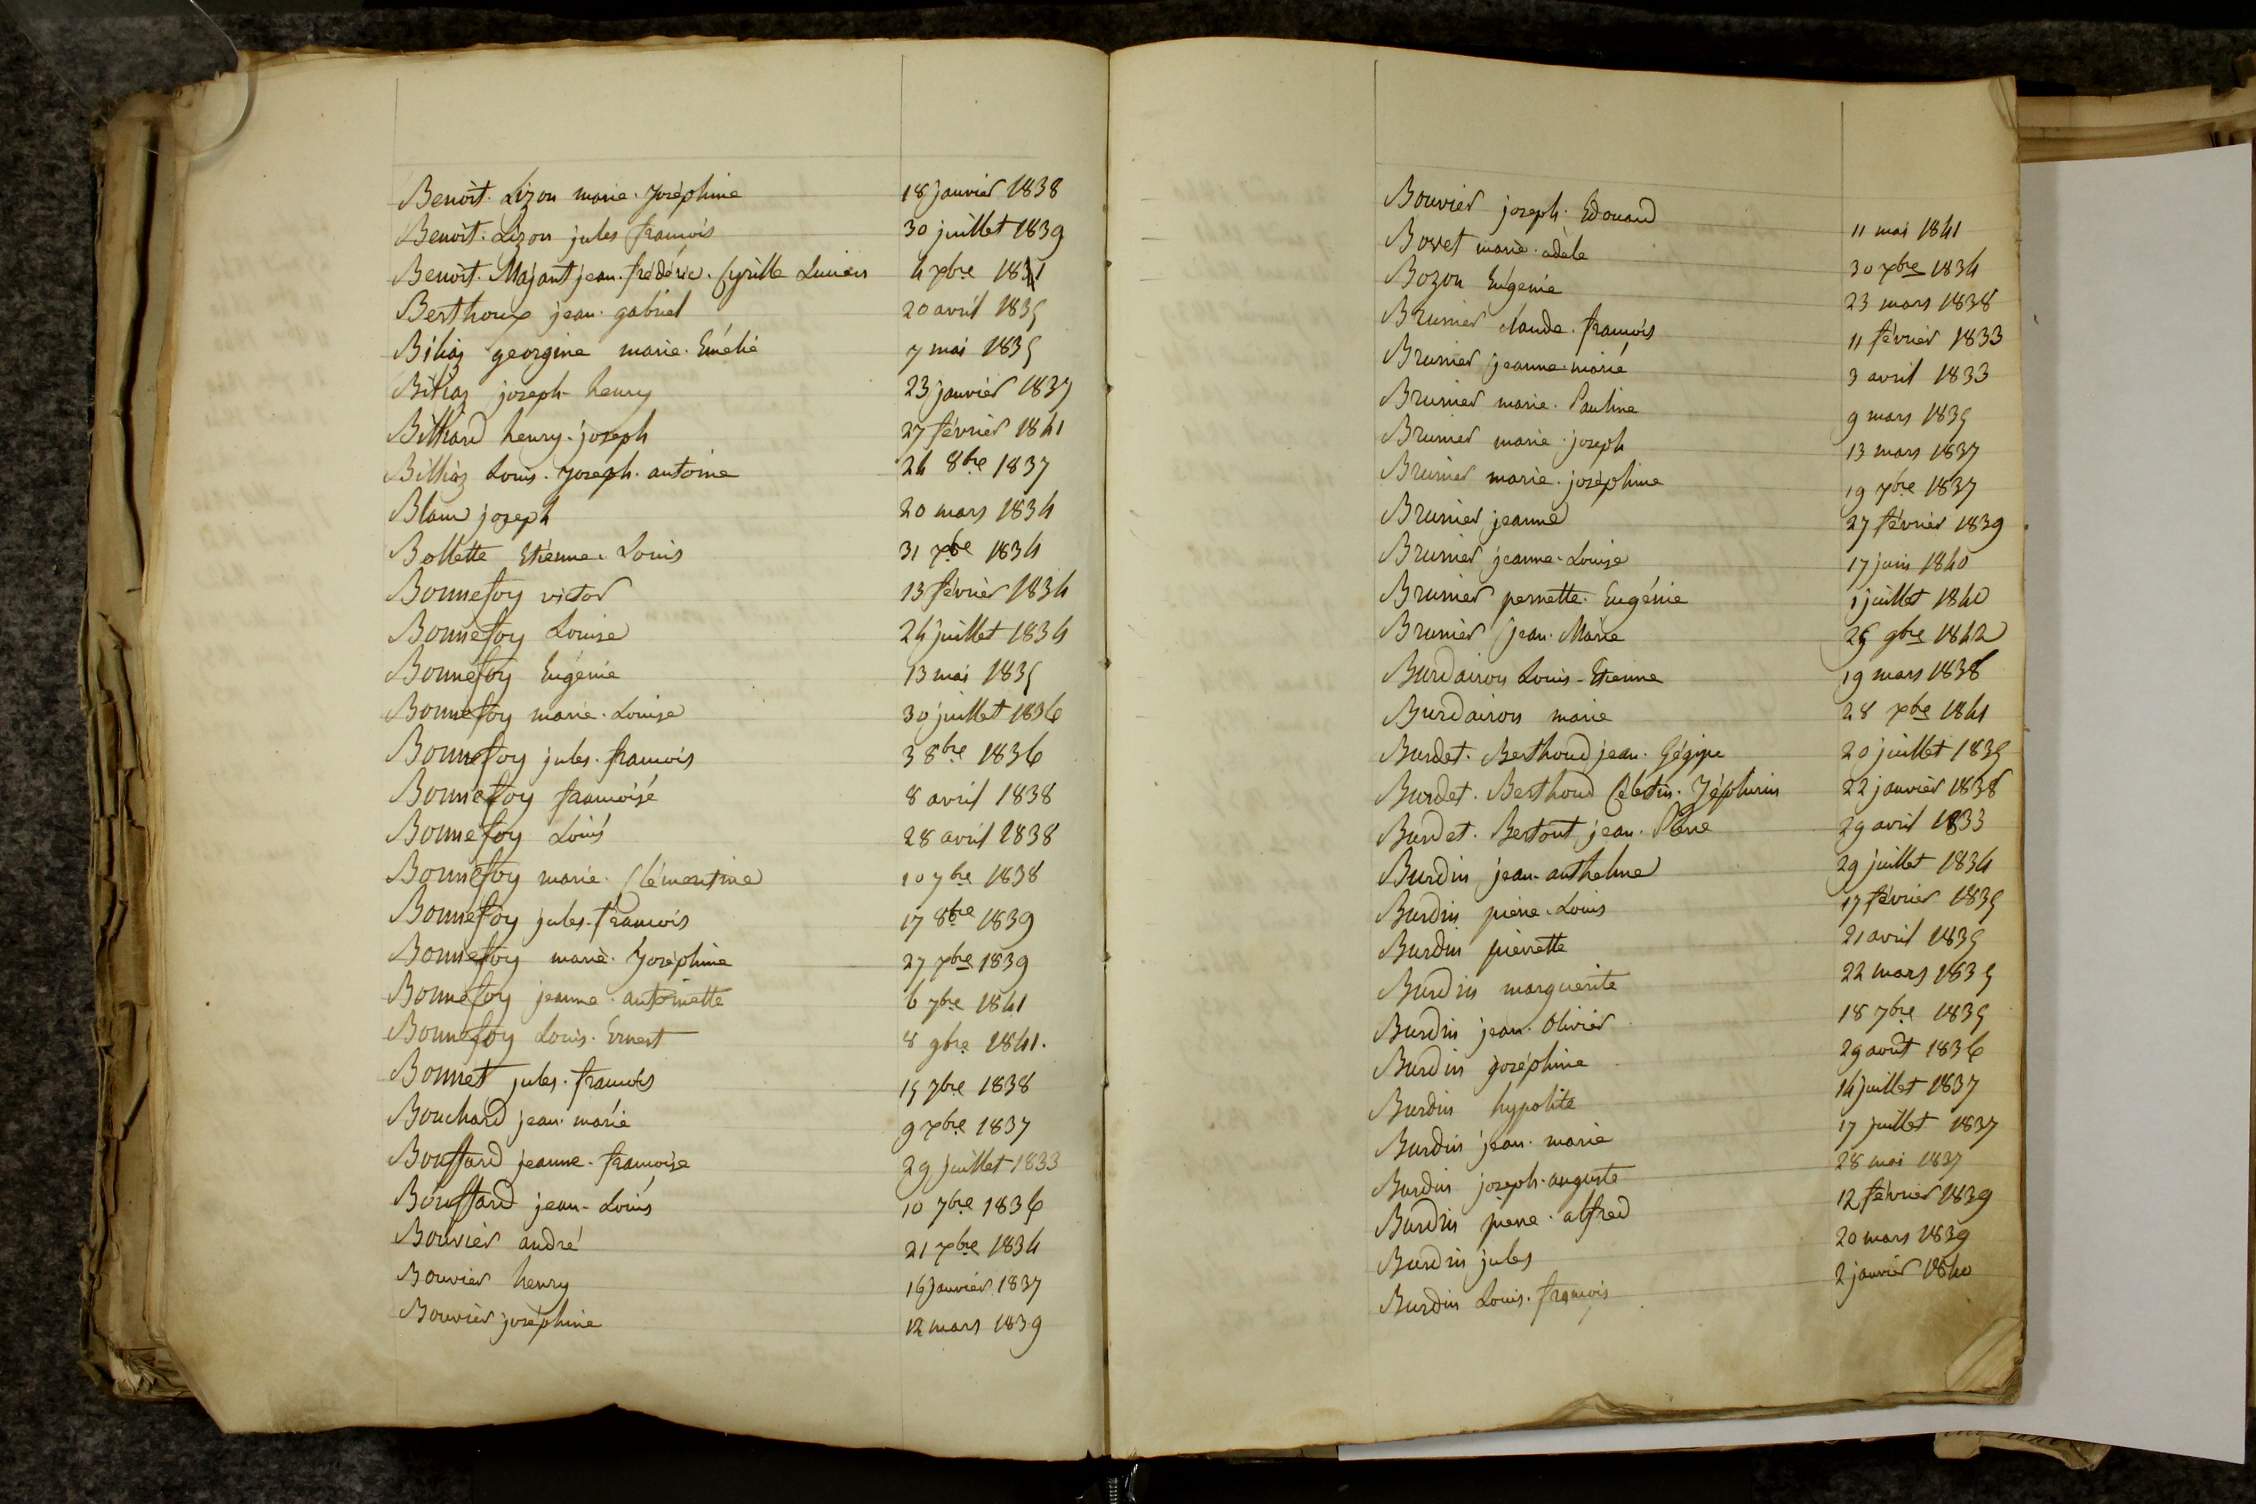 Benoit. Lizon marie. Joséphine 18 janvier 1838
Benoit. Lizon jules françois 30 juillet 1839
Benoit. Majant jean. frédéric. Cyrille Lucien 4 xbre 1841
Berthoux jean. gabriel 20 avril 1835
Biliaz georgine marie. Emélie 7 mai 1835
Biliaz joseph. henry 23 janvier 1837
Billiard henry. joseph 27 février 1841
Billiaz Louis. Joseph. antoine 24 8bre 1837
Blanc joseph 20 mars 1834
Bollette Etienne. Louis 31 xbre 1834
Bonnefoy victor 13 février 1834
Bonnefoy Louise 24 juillet 1834
Bonnefoy Eugénie 13 mai 1835
Bonnefoy marie. Louise 30 juillet 1836
Bonnefoy jules. françois 3 8bre 1836
Bonnefoy françoise 8 avril 1838
Bonnefoy Louis 28 avril 1838
Bonnefoy marie. Clémentine 10 7bre 1838
Bonnefoy jules. françois 17 8bre 1839
Bonnefoy marie. Joséphine 27 xbre 1839
Bonnefoy jeanne. antoinette 6 7bre 1841
Bonnefoy Louis. Ernest 8 9bre 1841.
Bonnet jules. françois 15 7bre 1838
Bouchard jean. marie 9 xbre 1837
Bouffard jeanne. françoise 29 juillet 1833
Bouffard jean. Louis 10 7bre 1836
Bouvier andré 21 xbre 1834
Bouvier henry 16 janvier 1837
Bouvier joséphine 12 mars 1839
Bouvier joseph. Edouard 11 mai 1841
Bovet marie. adèle 30 xbre 1834
Bozon Eugénie 23 mars 1838
Brunier claude. françois 11 février 1833
Brunier jeanne. marie 3 avril 1833
Brunier marie. Pauline 9 mars 1835
Brunier marie. joseph 13 mars 1837
Brunier marie. joséphine 19 xbre 1837
Brunier jeanne 27 février 1839
Brunier jeanne. Louise 17 juin 1840
Brunier pernette. Eugénie 1 juillet 1840
Brunier jean. Marie 25 9bre 1842
Burdairon Louis. Etienne 19 mars 1838
Burdairon marie 28 xbre 1841
Burdet. Berthoud jean. 20 juillet 1835
Burdet. Berthoud Célestin. Zéphirin 22 janvier 1838
Burdet. Bertout jean. Pierre 29 avril 1833
Burdin jean. anthelme 29 juillet 1834
Burdin pierre. Louis 17 février 1835
Burdin pierrette 21 avril 1835
Burdin marguerite 22 mars 1835
Burdin jean. Olivier 18 7bre 1835
Burdin joséphine 29 août 1836
Burdin hypolite 14 juillet 1837
Burdin jean. marie 17 juillet 1837
Burdin joseph. auguste 28 mai 1837
Burdin pierre. alfred 12 février 1839
Burdin jules 20 mars 1839
Burdin Louis. françois 2 janvier 1840